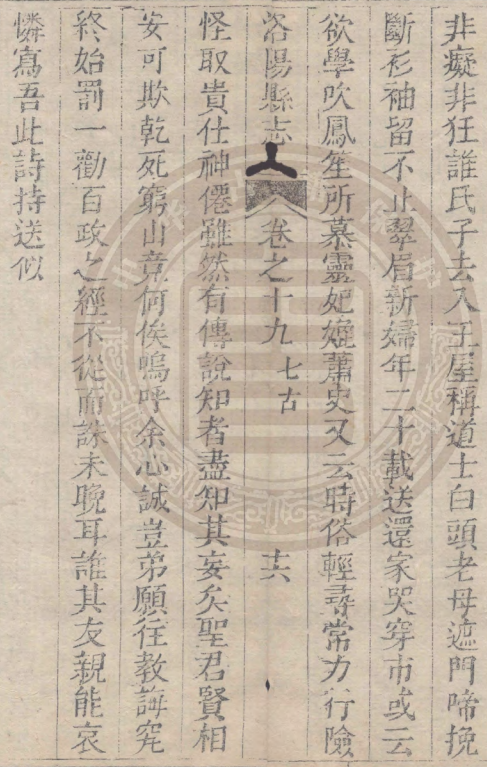 非癡非狂誰氏子去入王屋稱道士白頭老母遮門啼挽
斷衫袖留不止翠眉新婦年二十載送還家哭穿市或云
欲學吹鳳笙所慕靈妃媲蕭史又云時俗輕尋常力行險
洛陽縣志 卷之十九 七古 十六
怪取貴仕神僊雖然有傳說知者盡知其妄矣聖君賢相
安可欺乾死窮山竟何俟嗚呼余心誠豈弟願往教誨究
終始罰一勸百政之經不從而誅未晚耳誰其友親能哀
憐寫吾此詩持送似